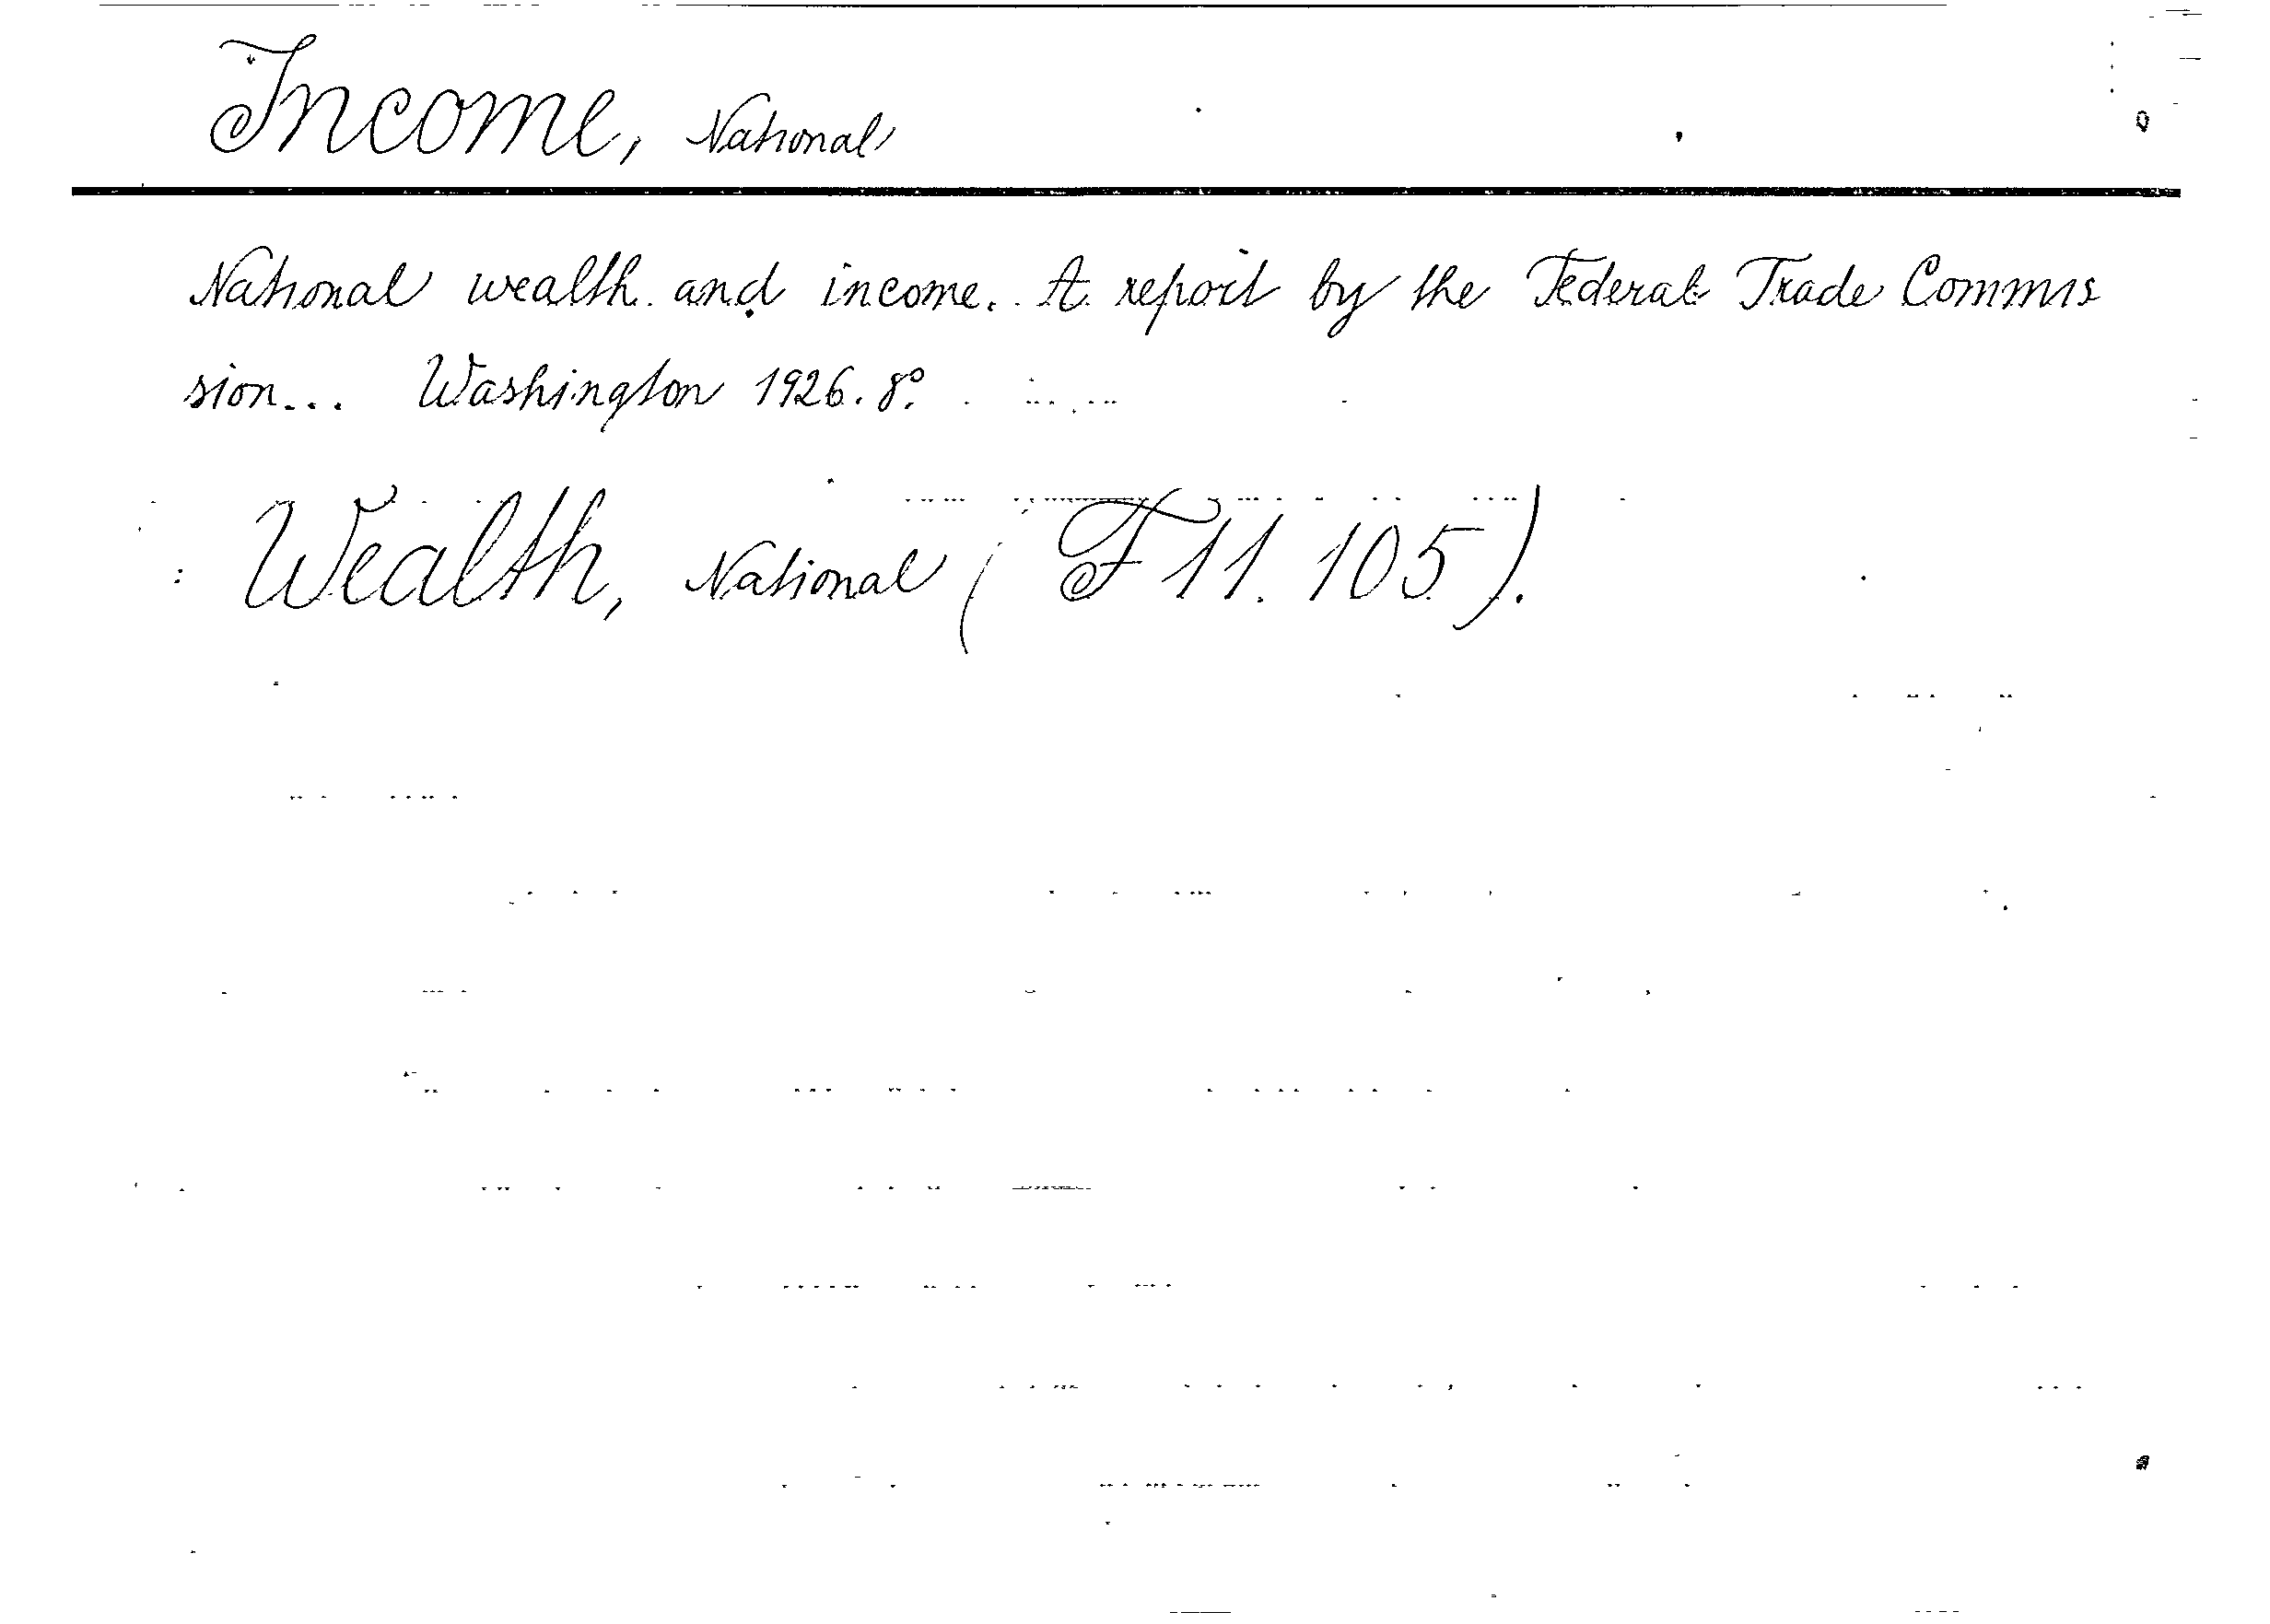 Income, National
National wealth and income. A report by the Federal Trade Commis
sion... Washington 1926. 8°.
Wealth, National (F 11. 105).